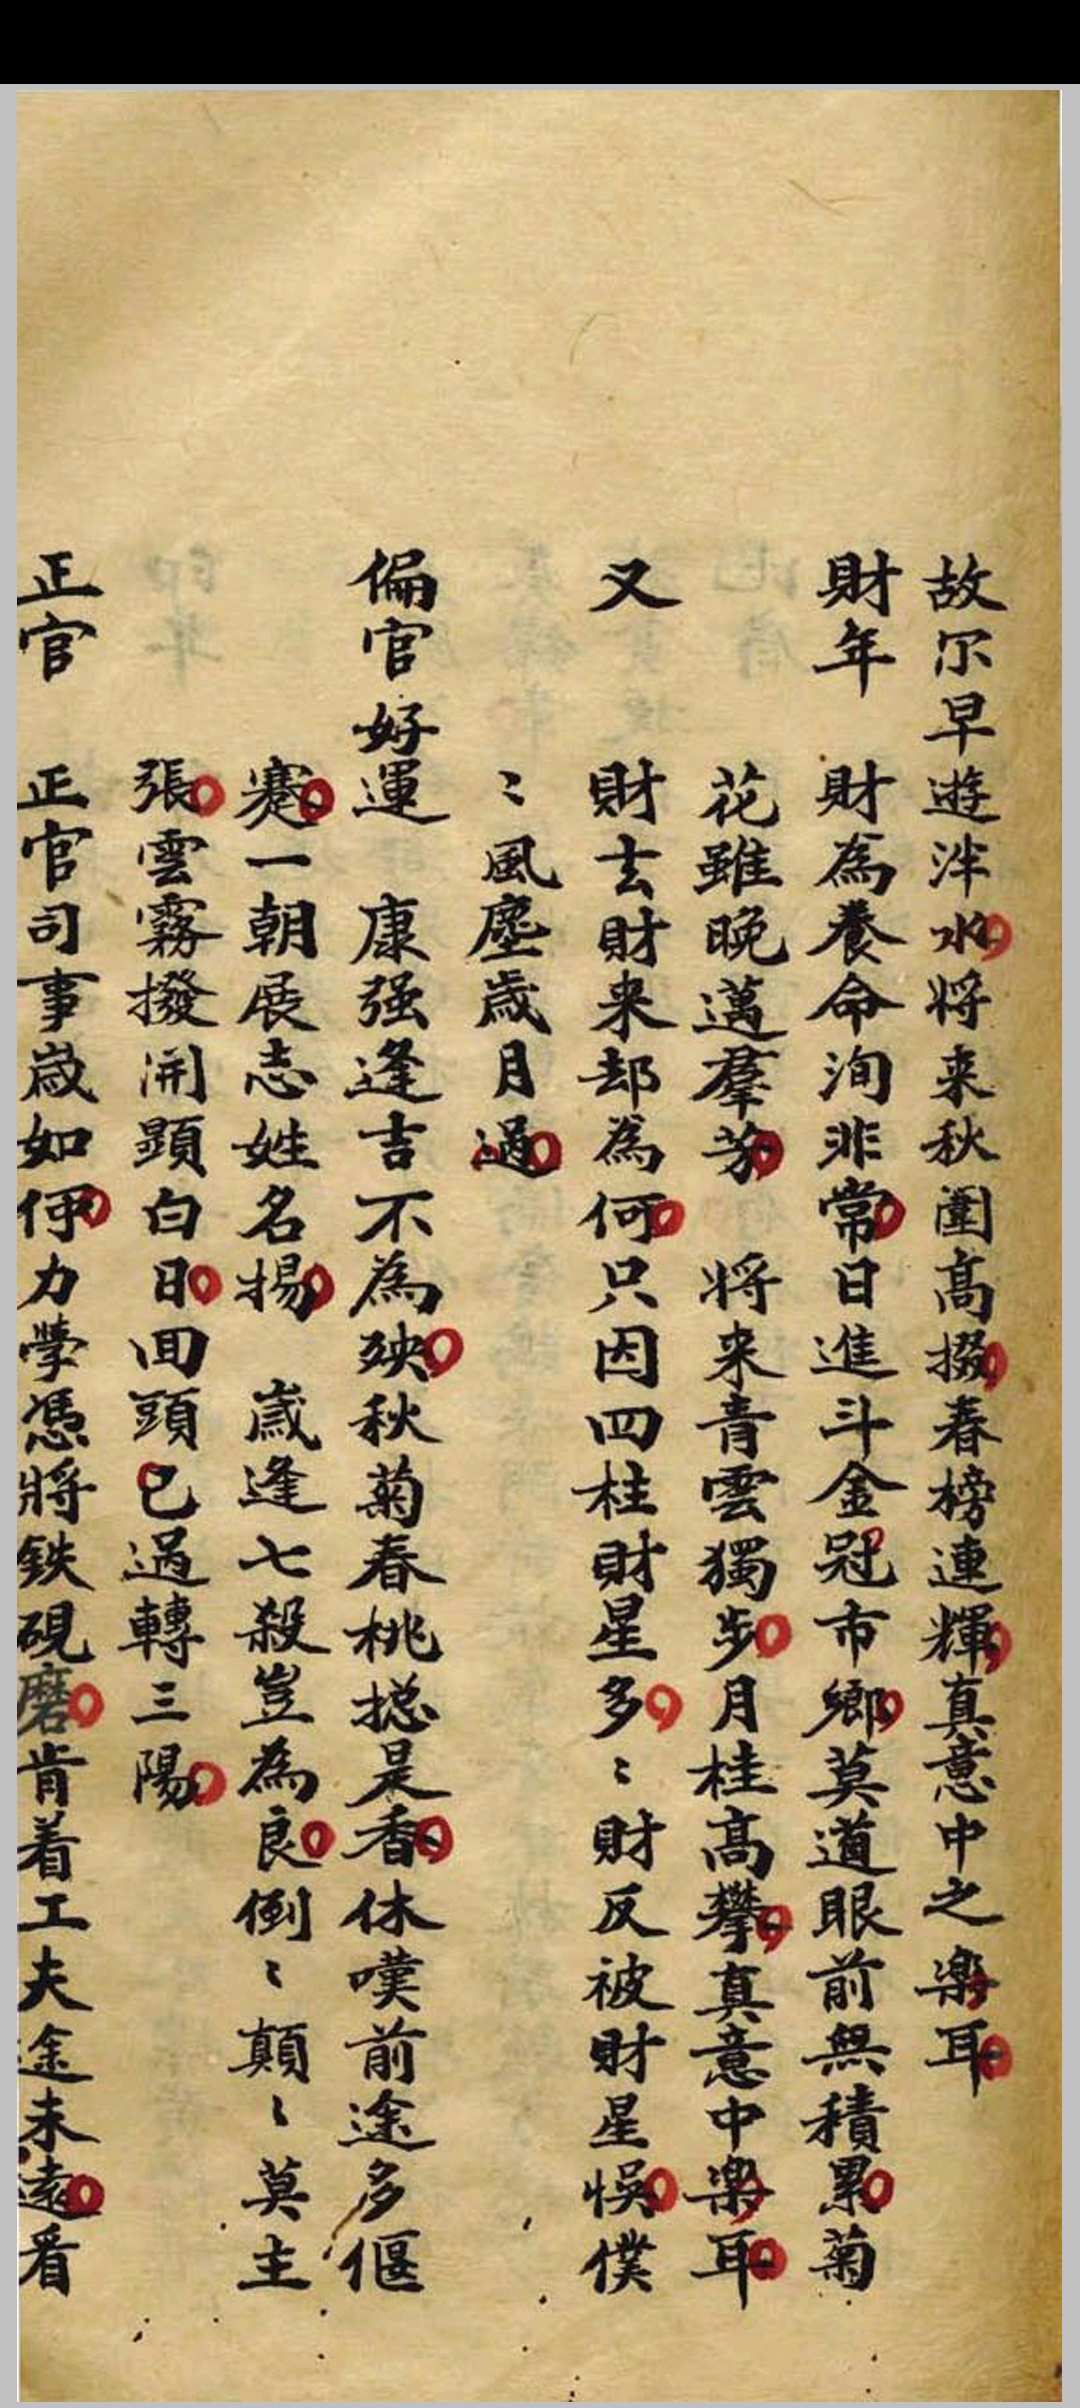 故尔早遊泮水将来秋闈高掇春榜連輝真意中之楽耳
財年 財為養命洵非常日進斗金冠市鄉莫道眼前無積累菊
花雖晚邁羣芳 将来青雲獨步月桂高攀真意中楽耳
又 財去財来却為何只因四柱財星多〻財反被財星悞僕
〻風塵歲月過
偏官好運 康强逢吉不為殃秋菊春桃揔是香休嘆前途多偃
蹇一朝展志姓名揚 歲逢七殺豈為良倒〻顛〻莫主
張雲霧撥開顕白日回頭已過轉三陽
正官 正官司事歲如何力學憑將鉄硯磨肯着工夫途未遠看